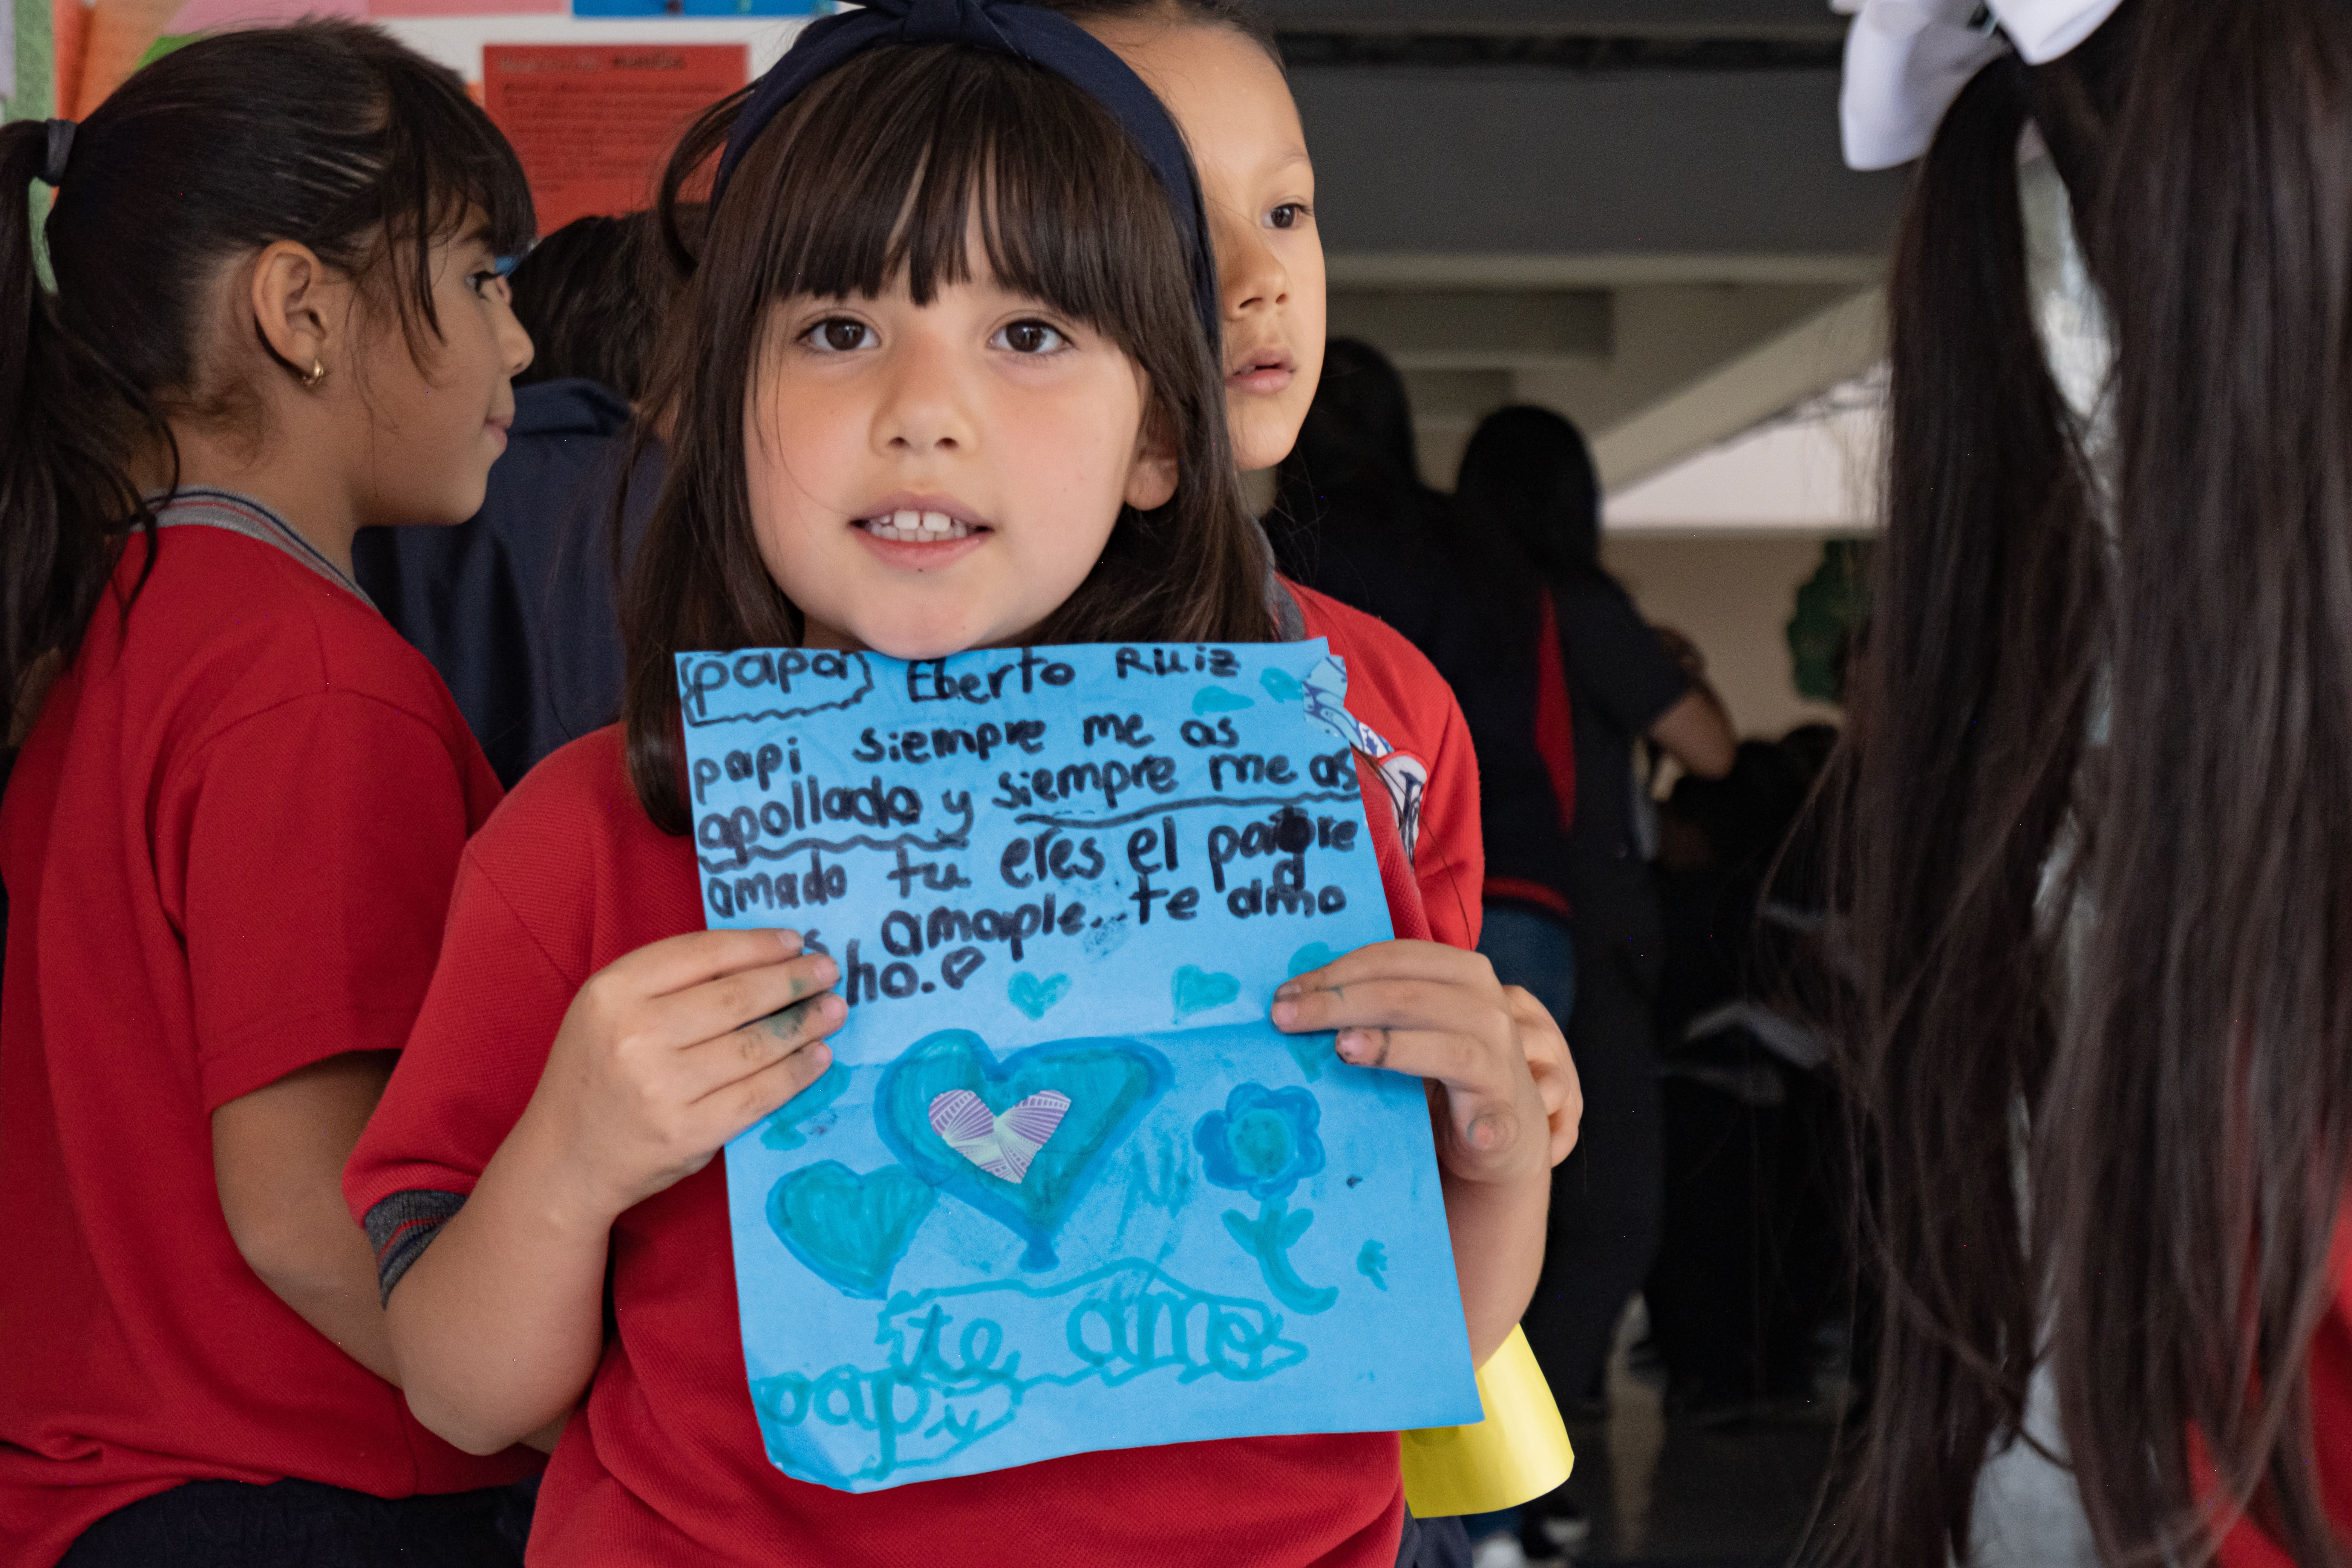 papá Eberto Ruiz
papi siempre me as
apollado y siempre me as
amado tu eres el padre
amaple.. te amo
ho.
te amo
papi